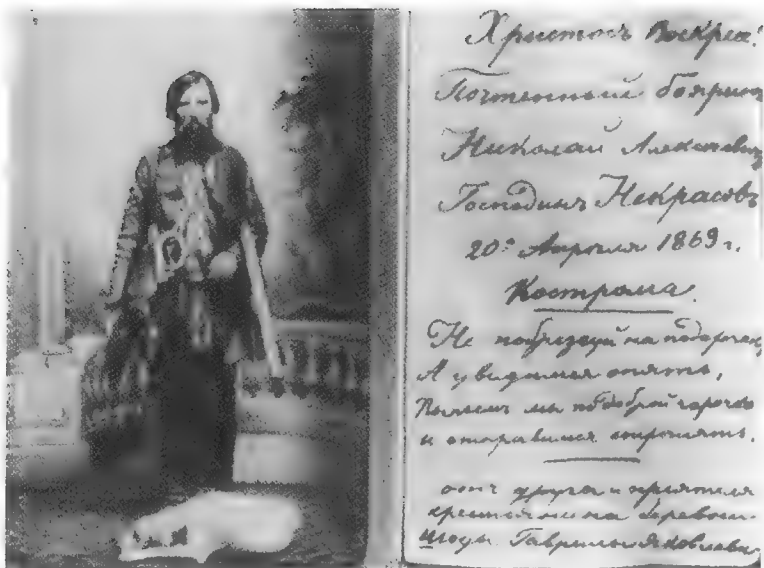 Христосъ Воскресе!
Почтенный бояринъ
Николай Алексѣевичъ
Господинъ Некрасовъ
20го Апрѣля 1869 г.
Кострома.
Не побрезгуй на подарочкѣ,
А увидимся опять,
Выпьемъ мы по доброй чарочкѣ
и отправимся стрелять.
отъ друга и приятеля
крестьянина деревни
Шоды Гаврилы Яковлевича